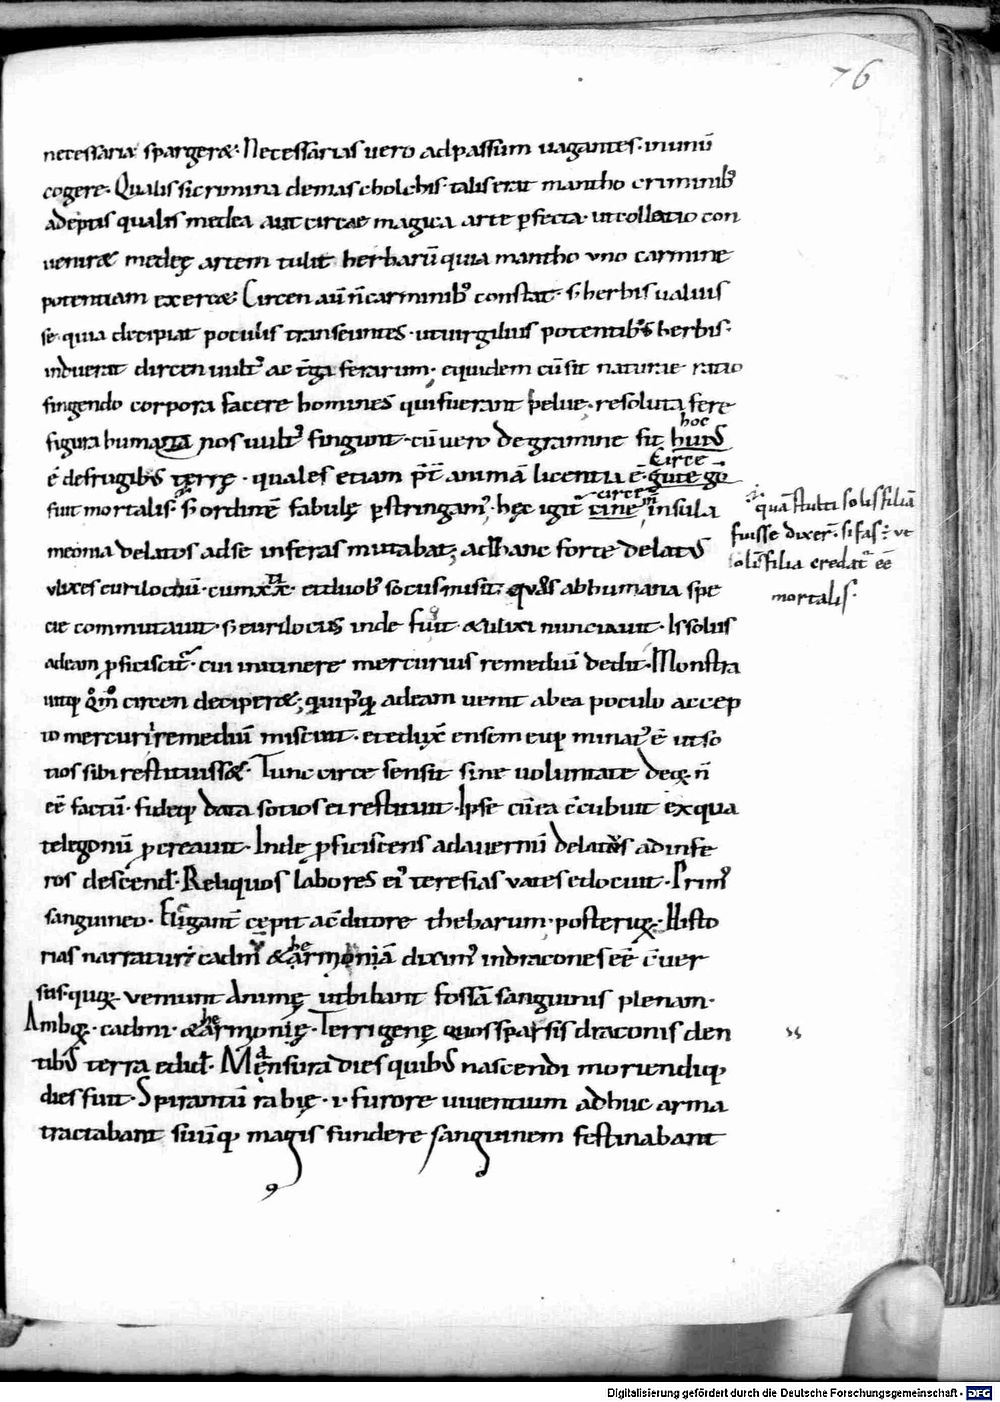 76
necessaria spargeræ. Necessarias uero ad passum uagantes. in unū
cogere. Qualis si crimina demas cholchis. talis erat mantho criminib᷒
ademptis qualis medea aut circae magica arte ꝑfecta. ut collatio con
ueniræ medeę artem tulit herbarū quia mantho uno carmine
potentiam exercæ. Circen aū n̄ carminib᷒ constat. s; herbis ualuis
se. quia decipiat poculis transeuntes. ut uirgilius potentib᷒ herbis.
induerat circen uult᷒ ac t̄ga ferarum. equidem cū sit naturae ratio
fingendo corpora facere homines qui fuerant belue. resoluta fere
figura humana nos uult᷒ fingunt. cū uero de gramine sit hui᷒
hoc
ē de frugib᷒ terrę. quales etiam p̄t̄ animā licentia ē.
Circe
fuit mortalis. s; ordinē fabulę ꝑstringam᷒. hęc igit᷒ insula
circe in
meonia delatos ad se in feras mutabat; ad hanc forte delat᷒
ulixes eurilochū. cum et duob᷒ sociis misit. quos ab humana spe
cie commutauit. s; eurilocus inde fuit & ulixi nunciauit. Is solus
ad eam ꝓficiscit᷒. cui in itinere mercurius remediū dedit. Monstra
uitq; circen deciperæ; ad eam uenit ab ea poculo accep
to mercurii remediū miscuit. et eduxē ensem eiq; minat᷒ ē ut so
tios sibi restituissæ. Tunc circe sensit sine uoluntate deoꝝ n̄
eē factū. fideq; data sotios ei restituit. Ipse cū ea c̄cubuit ex qua
telegonū ꝓcreauit. Inde ꝓficiscens ad auernū delat᷒ ad infe
ros descend̄. Reliquos labores ei᷒ teresias uates edocuit. Prim᷒
sanguineo. Eligant̄ cępit ac̄ditore thebarum. posterius. Histo
rias narratur᷒ cadm̄ & armoniā dixim᷒ in dracones eē c̄uer
he
sus. quoꝝ ueniunt animę ut bibant fossā sanguinis plenam.
Amboꝝ. cadmi. & armonię. Terrigenę quos sparsis draconis den
he
tib᷒ terra edid̄. Mensura dies quib᷒ nascendi moriendiq;
dies fuit. Spirantū rabię. i. furore uiuentium adhuc arma
tractabant suūq; magis fundere sanguinem festinabant
quā stulti solis filiā
fuisse dixer̄. si fas ē ut
solis filia credat᷒ eē
mortalis.
Digitalisierung gefördert durch die Deutsche Forschungsgemeinschaft - DFG